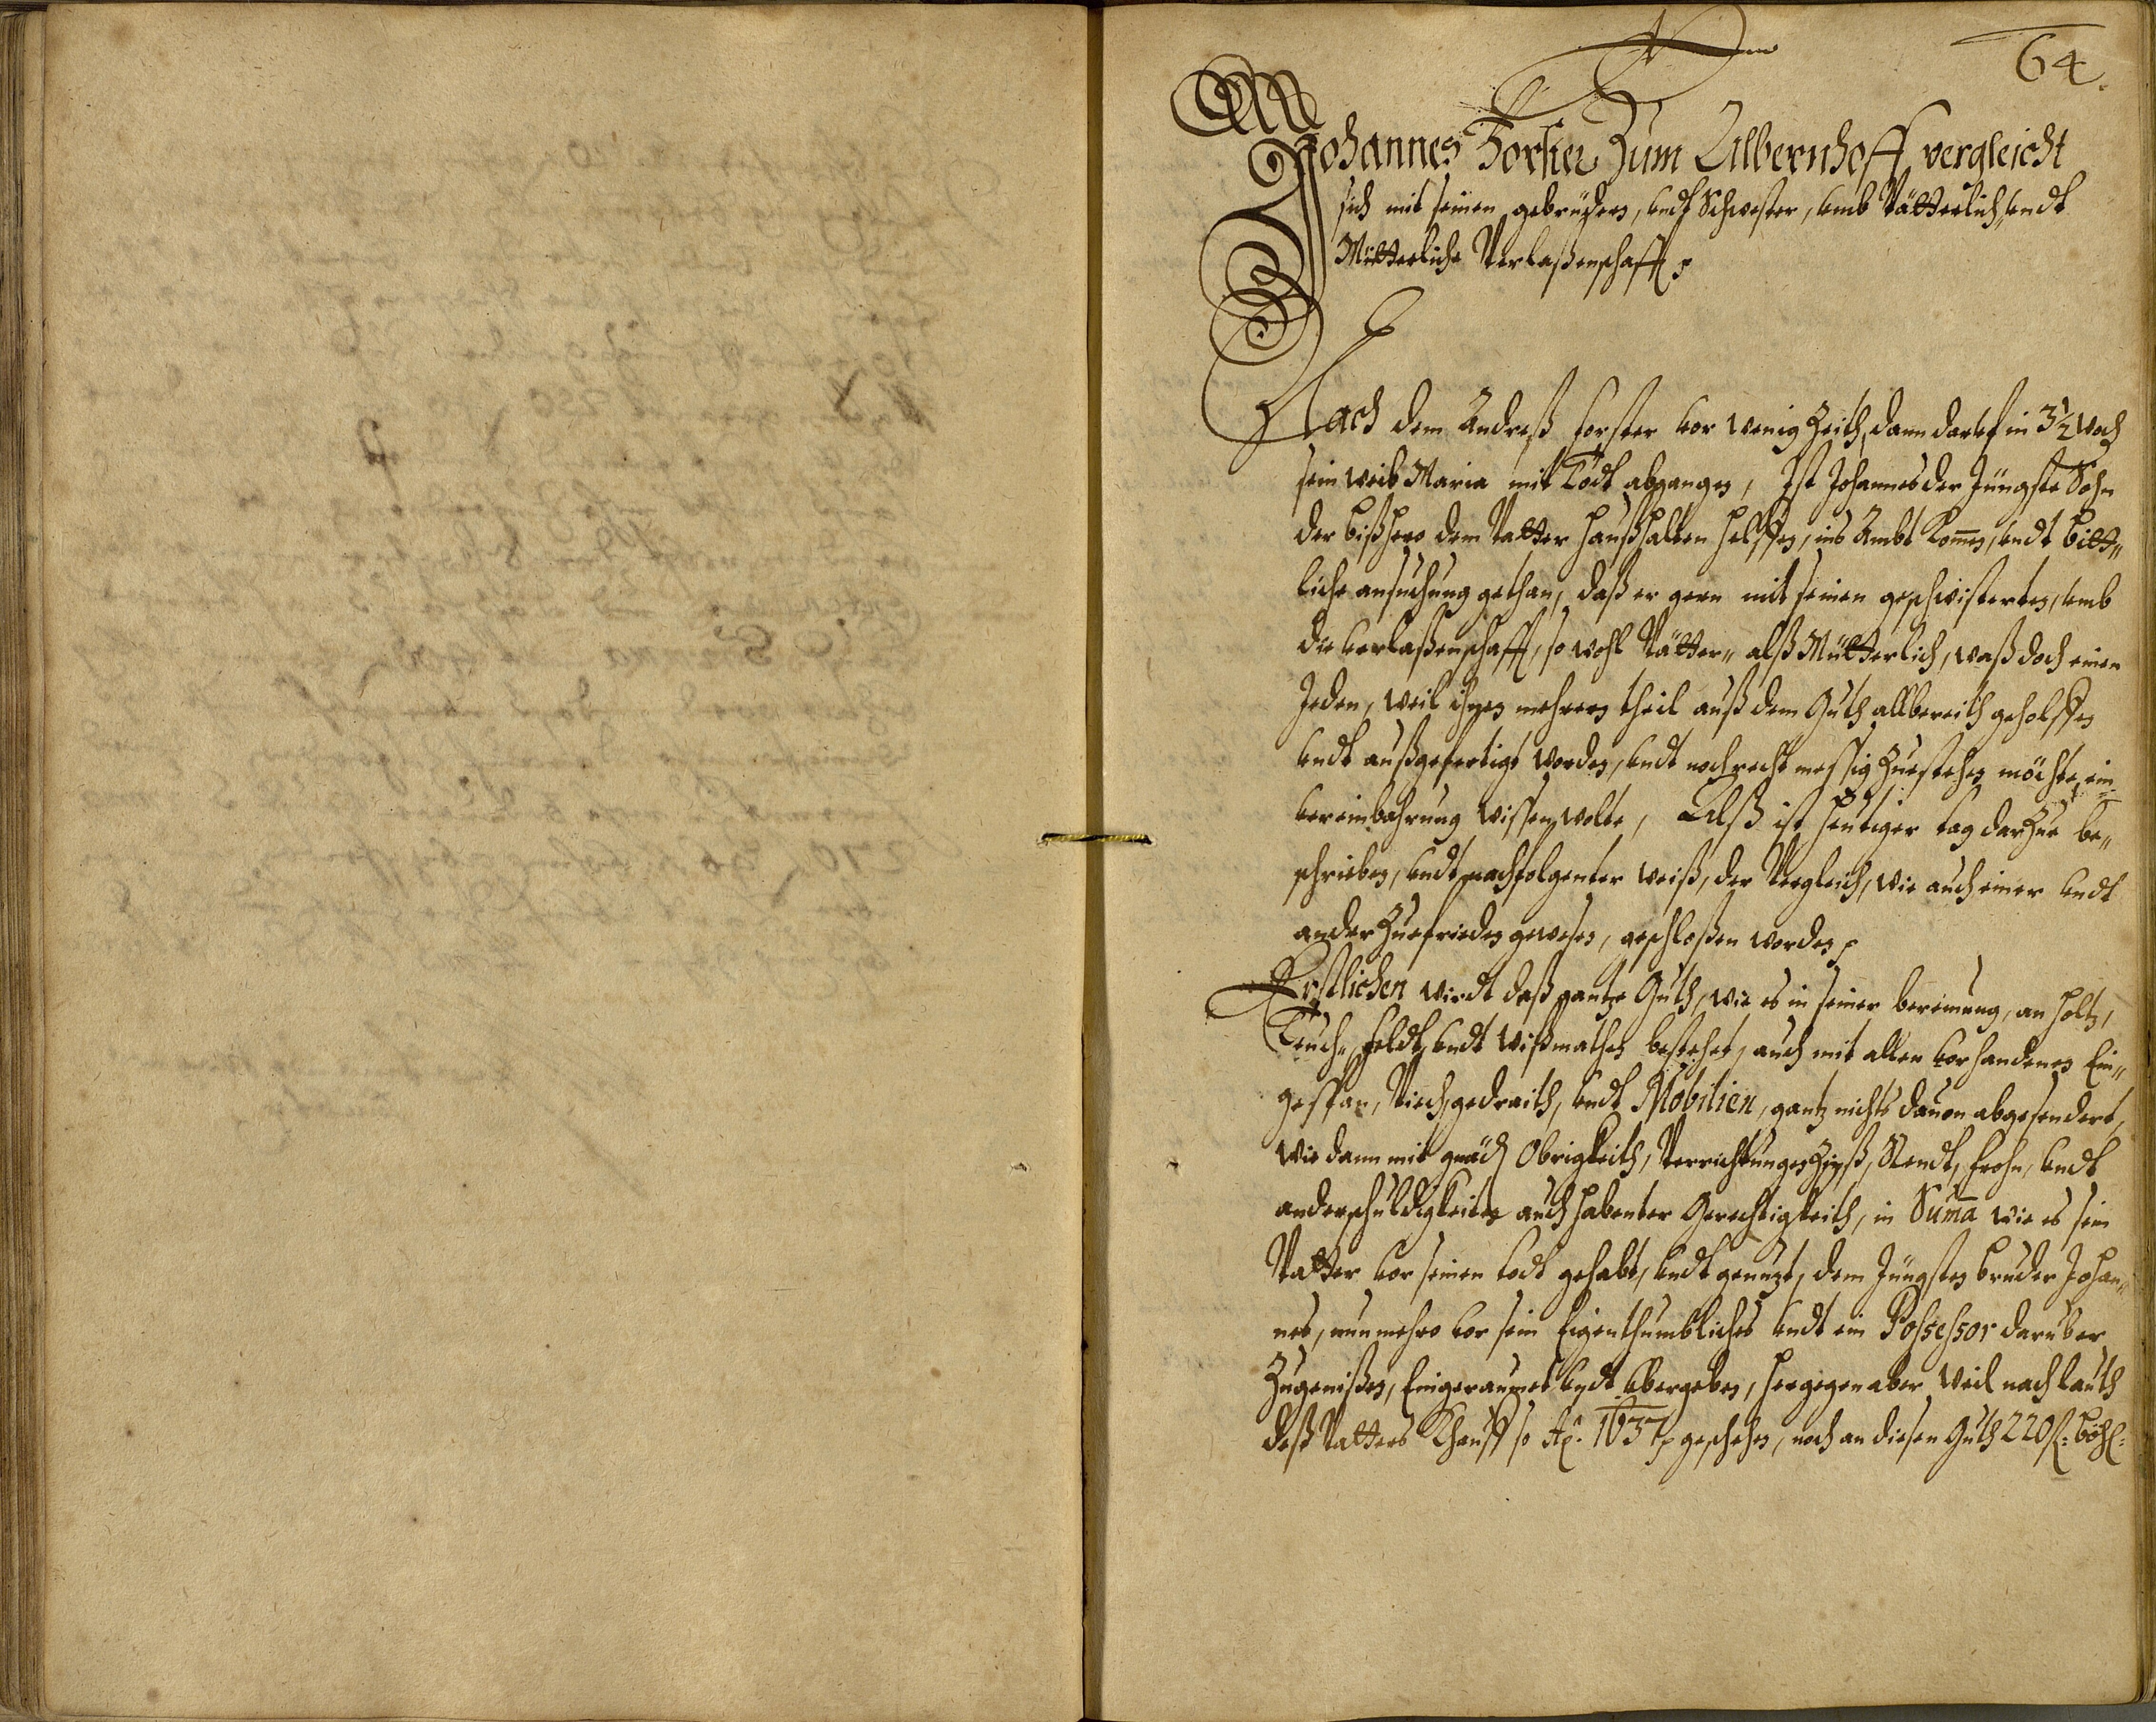 64.
Johannes Forster Zum Albernhoff vergleicht
sich mit seinen gebrüdern, undt Schwester, umb Vätterlich, undt
Mütterliche Verlaßenschafft
Nach dem Andreß Forster vor wenig Zeith, dann darauf in 3½ Woch
sein weib Maria mit Todt abgangen, Ist Johannes der Jüngste Sohn
der bißhero dem Vatter haußhalten helffen, ins Ambt kom̄en, undt bitt„
liche ansuchung gethan, daß er gern mit seinen geschwisterten, umb
die verlaßenschafft, so wohl Vätter„ alß Mütterlich, waß doch einen
Jeden, weil ihnen mehrers theil auß dem Guth allbereith geholffen
undt außgefertigt worden, undt noch rechtmessig Zuestehen möchte, ein
vereinbahrung wissen wolte, Alß ist heutiger tag darzue be„
schrieben, undt nachfolgenter weiß, der Vergleich, wie auch einer undt
ander Zuefrieden gewesen, geschloßen worden,
Erstlichen wirdt daß gantze Guth, wie es in seiner bereinung, an holtz,
Teuch„ feldt, undt wißmathen bestehet, auch mit allen vorhandenen Ein„
gespan, Viech, gedraith, undt Mobilien, gantz nichts dauon abgesendert,
wie dann mit gnäd Obrigkeith, Verrichtungen Zinß, Stendt, frohn, undt
anderschuldigkeiten auch habenter Gerechtigkeith, in Sum̄a wie es sein
Vatter vor seinen todt gehabt, undt genuzt, dem Jüngsten bruder Johan„
nes, nunmehro vor sein Eigenthumbliches undt ein Possessor darüber
Zugenißen, Eingeraumet undt übergeben, hergegen aber weil nach lauth
deß Vatters Khauff so Aō. 1637 geschehen, noch an diesen Guth 220 fl: böhl: